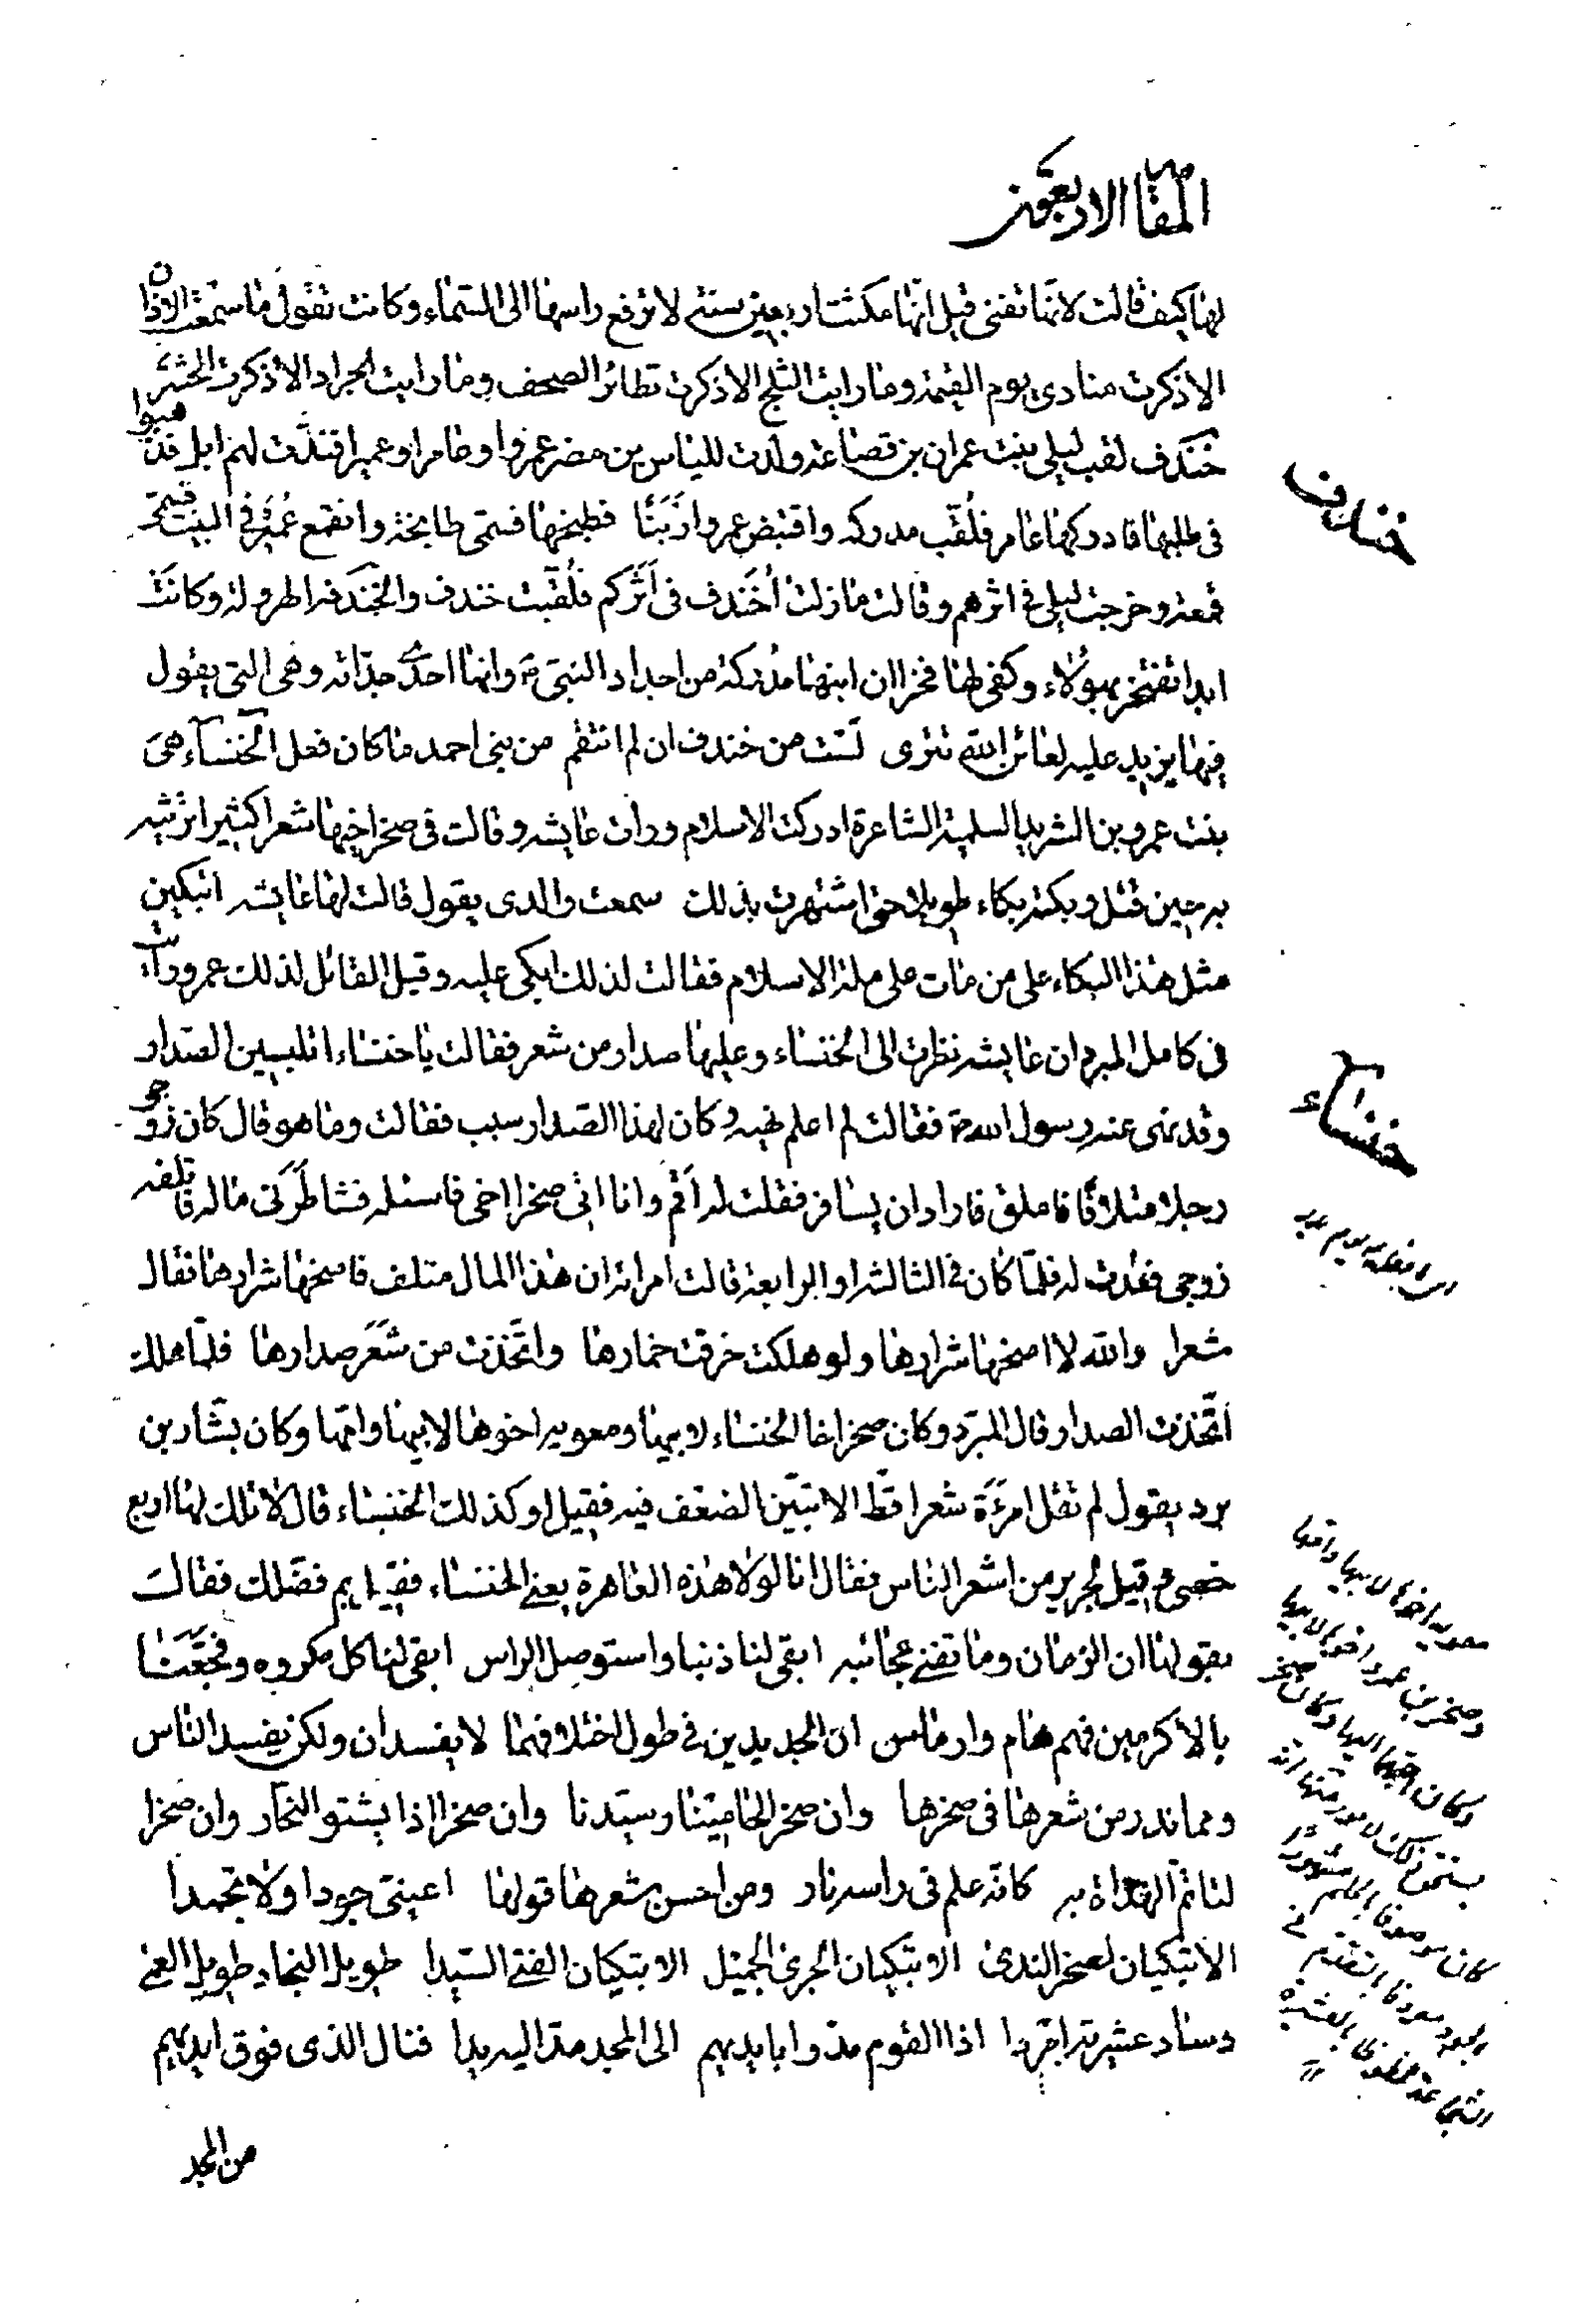 المقامة الاربعون
لها كيف قالت لانها تفنى قيل انها مكثت اربعين سنة لا ترفع راسها الى السماء وكانت تقول ما سمعت الاذان
الا ذكرت منادى يوم القيمة وما رايت الثلج الا ذكرت تطائر الصحف وما رايت الجراد الا ذكرت الحشر
خندف لقب ليلى بنت عمران بن قضاعة ولدت للياس بن مضر عمروا وعامرا وعميرا فندّت لهم ابل فذهبوا
فى طلبها فادركها عامر فلُقّب مدركه واقتنص عمروا اَرنَبًا فطبخها فسمى طابخة وانقمع عُمَير فى البيت فسمى
قمعة وخرجت ليلى فى اثرهم وقالت ما زلت اُخَندف فى اَثَركم فلُقّبت خندف والخَندفه الهرولة وكانَت
ابدا تفتخر بهؤلاء وكفى لها فخرا ان ابنها مُدركة من اجداد النبى ص وانها احدى جدّاته وهى التى يقول
فيها يزيد عليه لعائن الله تترى لَستُ من خندف ان لم انتقم من بنى احمد ما كان فعل الخنساء هى
بنت عمرو بن الشريد السلمية الشاعرة ادركت الاسلام ورات عايشه وقالت فى صخر اخيها شعرا كثيرا ترثيه
به حين قتل وبكته بكاء طويلا حتى اشتهرت بذلك سمعت والدى يقول قالت لها عايشه اتبكين
مثل هذا البكاء على من مات على ملة الاسلام فقالت لذلك ابكى عليه وقيل القائل لذلك عمر ورايت
فى كامل المبرد ان عايشه نظرت الى الخنساء وعليها صدار من شعر فقالت يا خنساء اتلبسين الصدار
وقد نهى عنه رسول الله ص فقالت لم اعلم بنهيه وكان لهذا الصدار سبب فقالت وما هو قال كان زوجى
رجلا متلافًا فاملق فاراد ان يسافر فقلت له اَقم وانا اتى صخرا اخى فاسئله فشاطَرَنى ماله فاتلفه
زوجى فعُدت له فلمّا كان فى الثالثه او الرابعة قالت امراته ان هذا المال متلف فامنحها شرارها فقال
شعرا والله لا امنحها شرارها ولو هلكت خرقت خمارها واتّخذت من شَعَر صدارها فلمّا هلك
اتّخذت الصدار وقال المبرّد وكان صخر اخا الخنساء لابيها ومعويه اخوها لابيها وامها وكان بشّار بن
برد يقول لم تقل امرءَة شعرا قط الا تبيّن الضعف فيه فقيل او كذلك الخنساء قال لا تلك لها اربع
خصى وقيل لجرير من اشعر الناس فقال انا لولا هذه العاهرة يعنى الخنساء فقيل بم فضّلتك فقالت
بقولها ان الزمان وما تفنى عجائبه ابقى لنا ذنبا واستوصل الراس ابقى لنا كل مكروه وفجّعَنا
بالاكرمين فهم هام وارماس ان الجديدين فى طول اختلافهما لا يفسدان ولكن يفسد الناس
ومما ندر من شعرها فى صخرها وان صخر لحامينا وسيدنا وان صخرا اذا يشتو النحّار وان صخرا
لتاتمّ الهداة به كانّه علم فى راسه نار ومن احسن شعرها قولها اعينىّ جودا ولا تجمدا
الا تبكيان لصخر الندى الا تبكيان الجرى الجميل الا تبكيان الفتى السيدا طويل النجاد طويل العنى
وساد عشيرته امردا اذا القوم مدوا بايديهم الى المجد مدّ اليه يدا فنال الذى فوق ايديهم
من المجد
خندف
خنساء
معويه اخوها لابيها وامها
وصخر بن عمرو اخوها لابيها